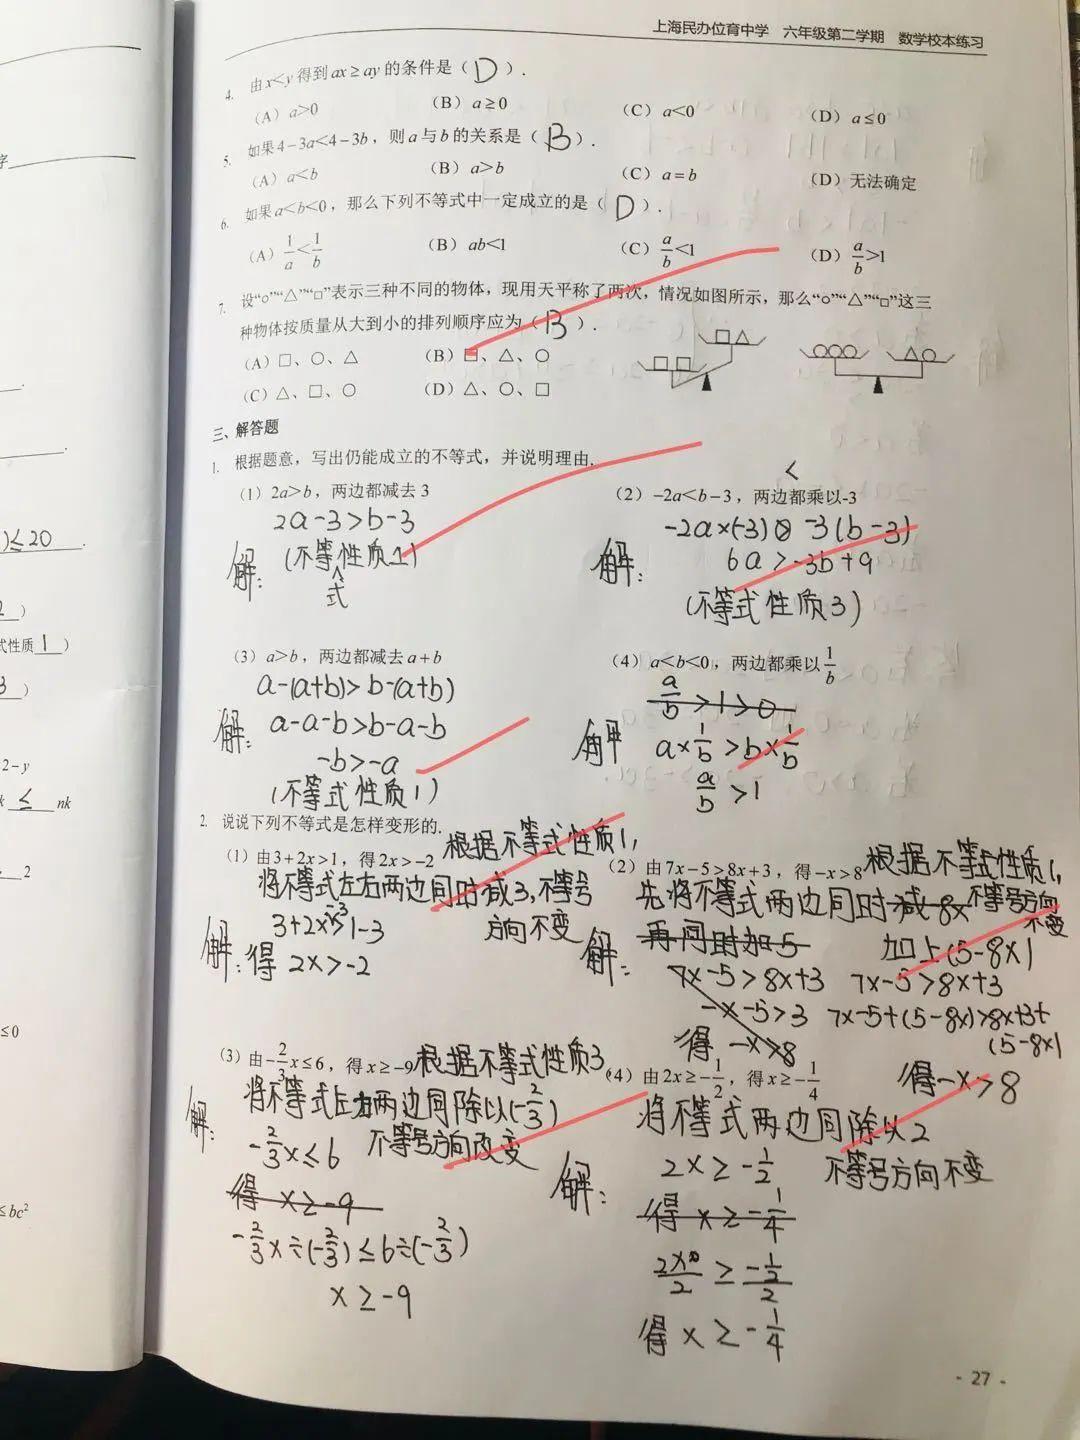 上海民办位育中学 六年级第二学期 数学校本练习
4. 由x<y得到ax≥ay的条件是( D ).
(A) a>0 (B) a≥0 (C) a<0 (D) a≤0
5. 如果4-3a<4-3b,则a与b的关系是( B ).
(A) a<b (B) a>b (C) a=b (D) 无法确定
6. 如果a<b<0,那么下列不等式中一定成立的是( D ).
(A) 1/a<1/b (B) ab<1 (C) a/b<1 (D) a/b>1
7. 设“○”“△”“□”表示三种不同的物体,现用天平称了两次,情况如图所示,那么“○”“△”“□”这三
种物体按质量从大到小的排列顺序应为( B ).
(A) □、○、△ (B) □、△、○
(C) △、□、○ (D) △、○、□
□□ □△ ○○○ △○
三、解答题
1. 根据题意,写出仍能成立的不等式,并说明理由.
(1) 2a>b,两边都减去3
2a-3>b-3
解: (不等式性质1)
(2) -2a<b-3,两边都乘以-3
<
-2a×(-3) -3(b-3)
解: 6a>-3b+9
(不等式性质3)
(3) a>b,两边都减去a+b
a-(a+b)>b-(a+b)
解: a-a-b>b-a-b
-b>-a
(不等式性质1)
(4) a<b<0,两边都乘以1/b
a/b>1>0
解 a×1/b>b×1/b
a/b>1
2. 说说下列不等式是怎样变形的.
(1) 由3+2x>1,得2x>-2 根据不等式性质1,
将不等式左右两边同时减3,不等号
方向不变
3+2x-3>1-3
解:得 2x>-2
(2) 由7x-5>8x+3,得-x>8 根据不等式性质1,
先将不等式两边同时减8x 不等号方向
不变
再同时加5 加上(5-8x)
解: 7x-5>8x+3 7x-5>8x+3
-x-5>3 7x-5+(5-8x)>8x+3+
(5-8x)
得 -x>8 得-x>8
(3) 由-2/3x≤6,得x≥-9 根据不等式性质3,
将不等式左右两边同除以(-2/3)
解: -2/3x≤6 不等号方向改变
得 x≥-9
-2/3x÷(-2/3)≤6÷(-2/3)
x≥-9
(4) 由2x≥-1/2,得x≥-1/4
将不等式两边同除以2
2x≥-1/2 不等号方向不变
解: 得 x≥-1/4
2x/2≥-1/2/2
得 x≥-1/4
- 27 -
)≤20
式性质 1 )
2-y
k ≤ nk
2
≤0
≤bc²